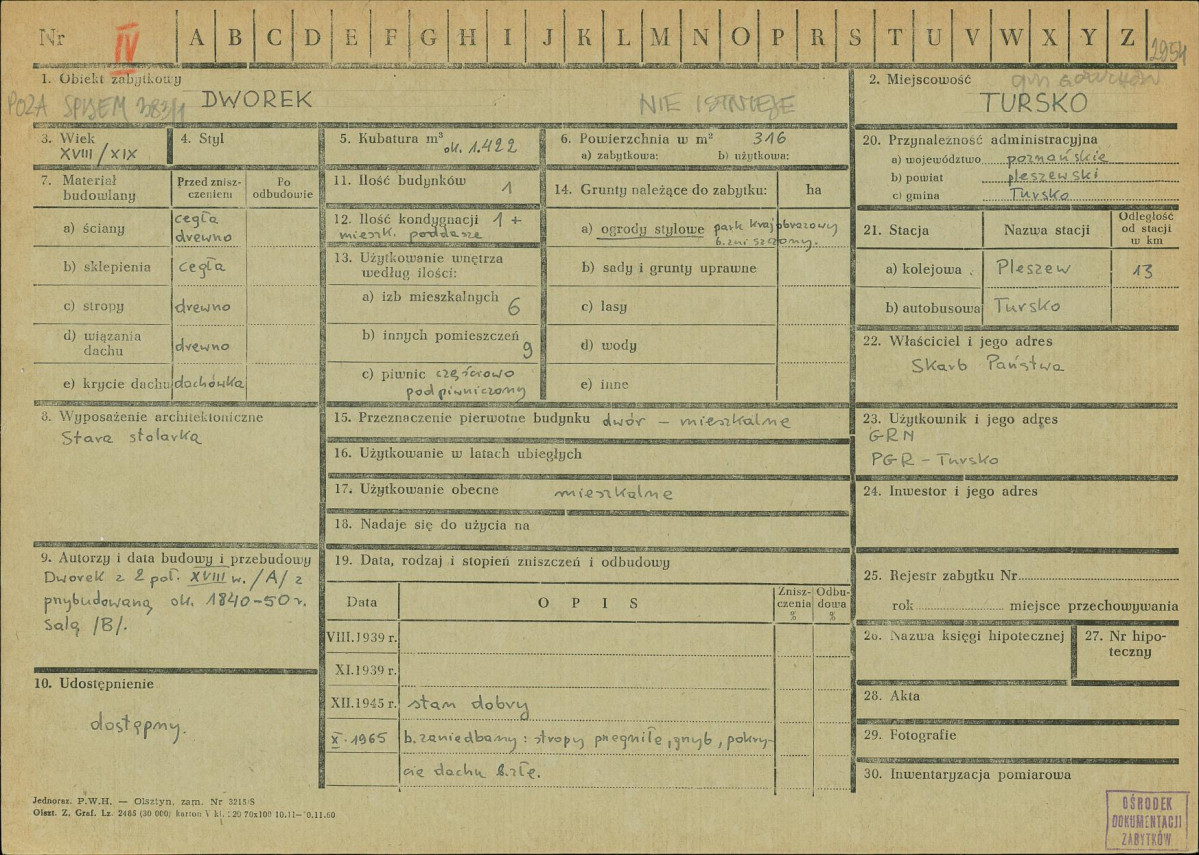 Nr IV A B C D E F G H I J K L M N O P R S T U V W X Y Z 2954
1. Obiekt zabytkowy
POZA SPISEM
DWOREK
NIE ISTNIEJE
2. Miejscowość
gm GOŁUCHÓW
TURSKO
3. Wiek
XVIII/XIX
4. Styl
5. Kubatura m³
ok. 1.422
6. Powierzchnia w m² 316
a) zabytkowa: b) użytkowa:
7. Materiał budowlany
Przed zniszczeniem
Po odbudowie
a) ściany cegła
drewno
b) sklepienia cegła
c) stropy drewno
d) wiązania
dachu drewno
e) krycie dachu dachówka
8. Wyposażenie architektoniczne
Stara stolarka
9. Autorzy i data budowy i przebudowy
Dworek z 2 poł. XVIII w. /A/ z
przybudowaną ok. 1840-50 r.
salą /B/.
10. Udostępnienie
dostępny.
11. Ilość budynków 1
12. Ilość kondygnacji 1 +
mieszk. poddasze
13. Użytkowanie wnętrza
według ilości:
a) izb mieszkalnych 6
b) innych pomieszczeń 9
c) piwnic częściowo
podpiwniczony
14. Grunty należące do zabytku: ha
a) ogrody stylowe park krajobrazowy
b. zniszczony.
b) sady i grunty uprawne
c) lasy
d) wody
e) inne
15. Przeznaczenie pierwotne budynku dwór – mieszkalne
16. Użytkowanie w latach ubiegłych
17. Użytkowanie obecne mieszkalne
18. Nadaje się do użycia na
19. Data, rodzaj i stopień zniszczeń i odbudowy
Data
O P I S
Zniszczenia %
Odbudowa %
VIII.1939 r.
XI.1939 r.
XII.1945 r. stan dobry
X.1965 b. zaniedbany: stropy przegniłe, grzyb, pokry-
cie dachu b. złe.
20. Przynależność administracyjna
a) województwo poznańskie
b) powiat pleszewski
c) gmina Tursko
21. Stacja
Nazwa stacji
Odległość
od stacji
w km
a) kolejowa Pleszew 13
b) autobusowa Tursko
22. Właściciel i jego adres
Skarb Państwa
23. Użytkownik i jego adres
GRN
PGR – Tursko
24. Inwestor i jego adres
25. Rejestr zabytku Nr
rok miejsce przechowywania
26. Nazwa księgi hipotecznej
27. Nr hipo-
teczny
28. Akta
29. Fotografie
30. Inwentaryzacja pomiarowa
Jednoraz. P.W.H. — Olsztyn, zam. Nr 3215/S
Olszt. Z. Graf. Lz. 2465 (30 000) karton V kl. 220 70x100 10.11—10.11.60
OŚRODEK
DOKUMENTACJI
ZABYTKÓW